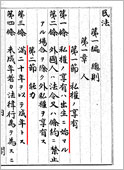 民法
第一編 總則
第一章 人
第一節 私權ノ享有
第一條 私權ノ享有ハ出生ニ始マル
第二條 外國人ハ法令又ハ條約ニ禁止
アル場合ヲ除ク外私權ヲ享有ス
第二節 能力
第三條 滿二十年ヲ以テ成年トス
第四條 未成年者カ法律行爲ヲ爲スニ